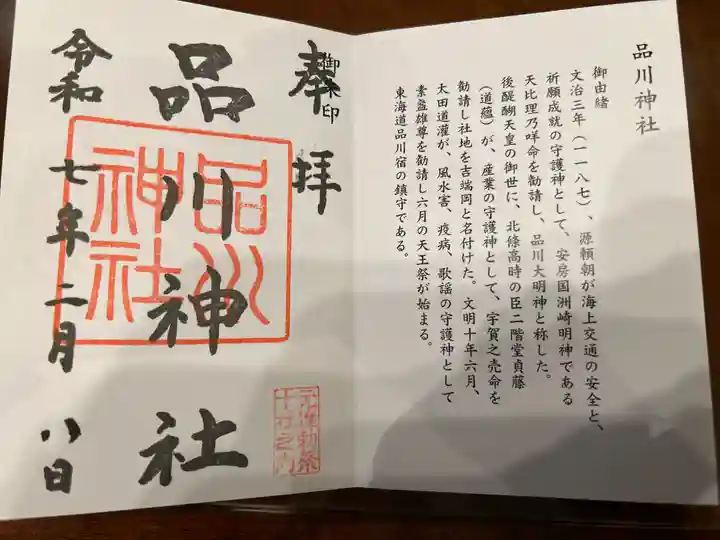 品川神社
御由緒
文治三年(一一八七)、源頼朝が海上交通の安全と、
祈願成就の守護神として、安房国洲崎明神である
天比理乃咩命を勧請し、品川大明神と称した。
後醍醐天皇の御世に、北條高時の臣二階堂貞藤
(道蘊)が、産業の守護神として、宇賀之売命を
勧請し社地を吉端岡と名付けた。文明十年六月、
太田道灌が、風水害、疫病、歌謡の守護神として
素盞雄尊を勧請し六月の天王祭が始まる。
東海道品川宿の鎮守である。
奉拝
品川神社
令和七年二月八日
品川
神社
元准勅祭
十社之内